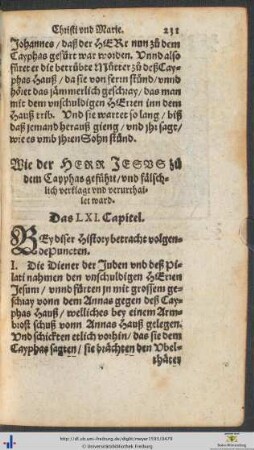 Christi vnd Marie. 231
Johannes / daß der HERr nun zů dem
Cayphas gefürt war worden. Vnnd also
fůret er die betrübte Můtter zů deß Cay-
phas Hauß / da sie von fern stůnd / vnnd
höret das jämmerlich geschray / das man
mit dem vnschuldigen HErren inn dem
Hauß trib. Vnd sie wartet so lang / biß
daß jemand herauß gieng / vnd jhr sagt /
wie es vmb jhren Sohn stůnd.
Wie der HERR JESVS zů
dem Cayphas gefůhrt / vnd fälsch-
lich verklagt vnd verurthai-
let ward.
Das LXI. Capitel.
BEy diser History betracht volgen-
de Puncten.
1. Die Diener der Juden vnd deß Pi-
lati nahmen den vnschuldigen HErren
Jesum / vnnd fürten jn mit grossem ge-
schray vonn dem Annas gegen deß Cay-
phas Hauß / welliches bey einem Arm-
brost schuß vonn Annas Hauß gelegen.
Vnd schickten etlich vorhin / das sie dem
Cayphas sagten / sie brächten den Vbel-
thäter
http://dl.ub.uni-freiburg.de/diglit/meyer1591/0479
© Universitätsbibliothek Freiburg